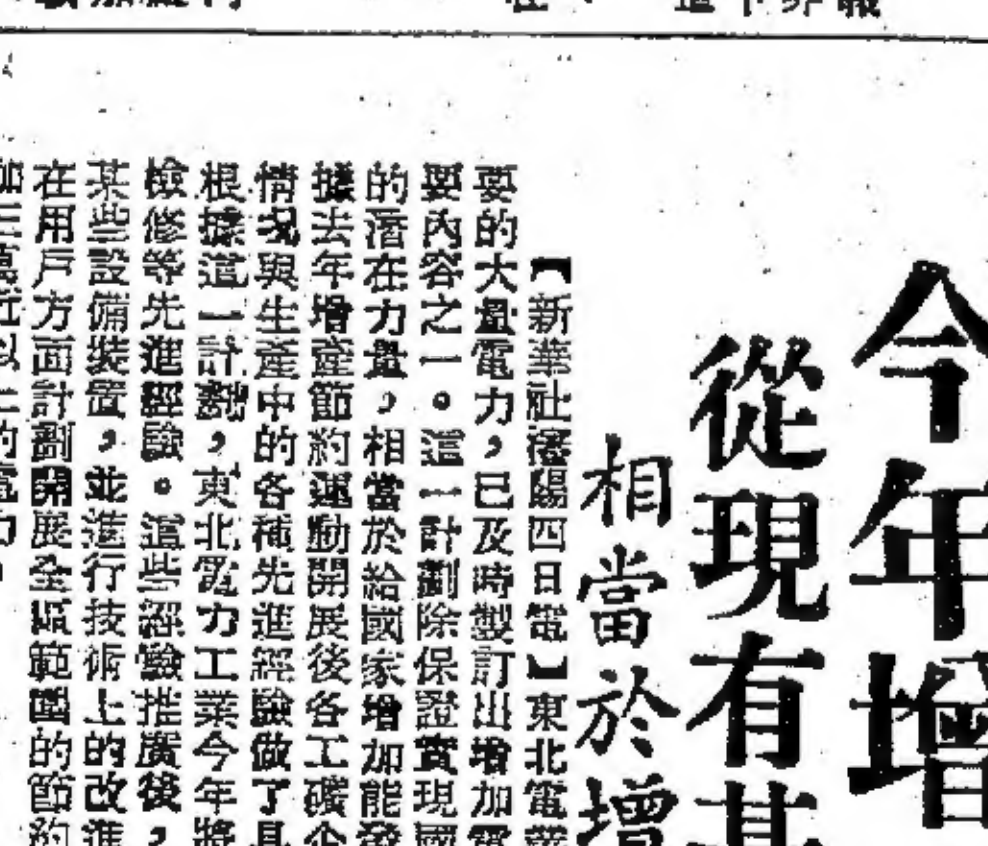 今年增
從現有基
相當於增
【新華社瀋陽四日電】東北電業
要的大量電力，已及時製訂出增加電
要內容之一。這一計劃除保證實現國
的潛在力量，相當於給國家增加能發
據去年增產節約運動開展後各工礦企
情況與生產中的各種先進經驗做了具
根據這一計劃，東北電力工業今年將
檢修等先進經驗。這些經驗推廣後，
某些設備裝置，並進行技術上的改進
在用戶方面計劃開展全區範圍的節約